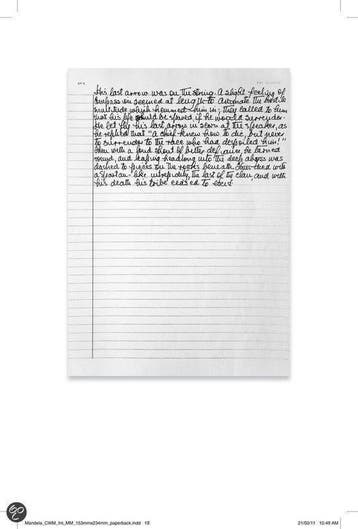 His last arrow was on the string. A slight feeling of
compassion seemed at length to animate the hostile
multitude which hemmed him in; they called to him
that his life would be spared if he would surrender.
He let fly his last arrow in scorn at the speaker, as
he replied that "a chief knew how to die, but never
to surrender to the race who had despoiled him!"
Then with a loud shout of bitter defiance, he turned
round, and leaping headlong into the deep abyss was
dashed to pieces on the rocks beneath. Thus died with
a Spartan-like intrepidity, the last of the clan, and with
his death his tribe ceased to exist
Mandela_CWM_Int_MM_153mmx234mm_paperback.indd 18
21/02/11 10:49 AM